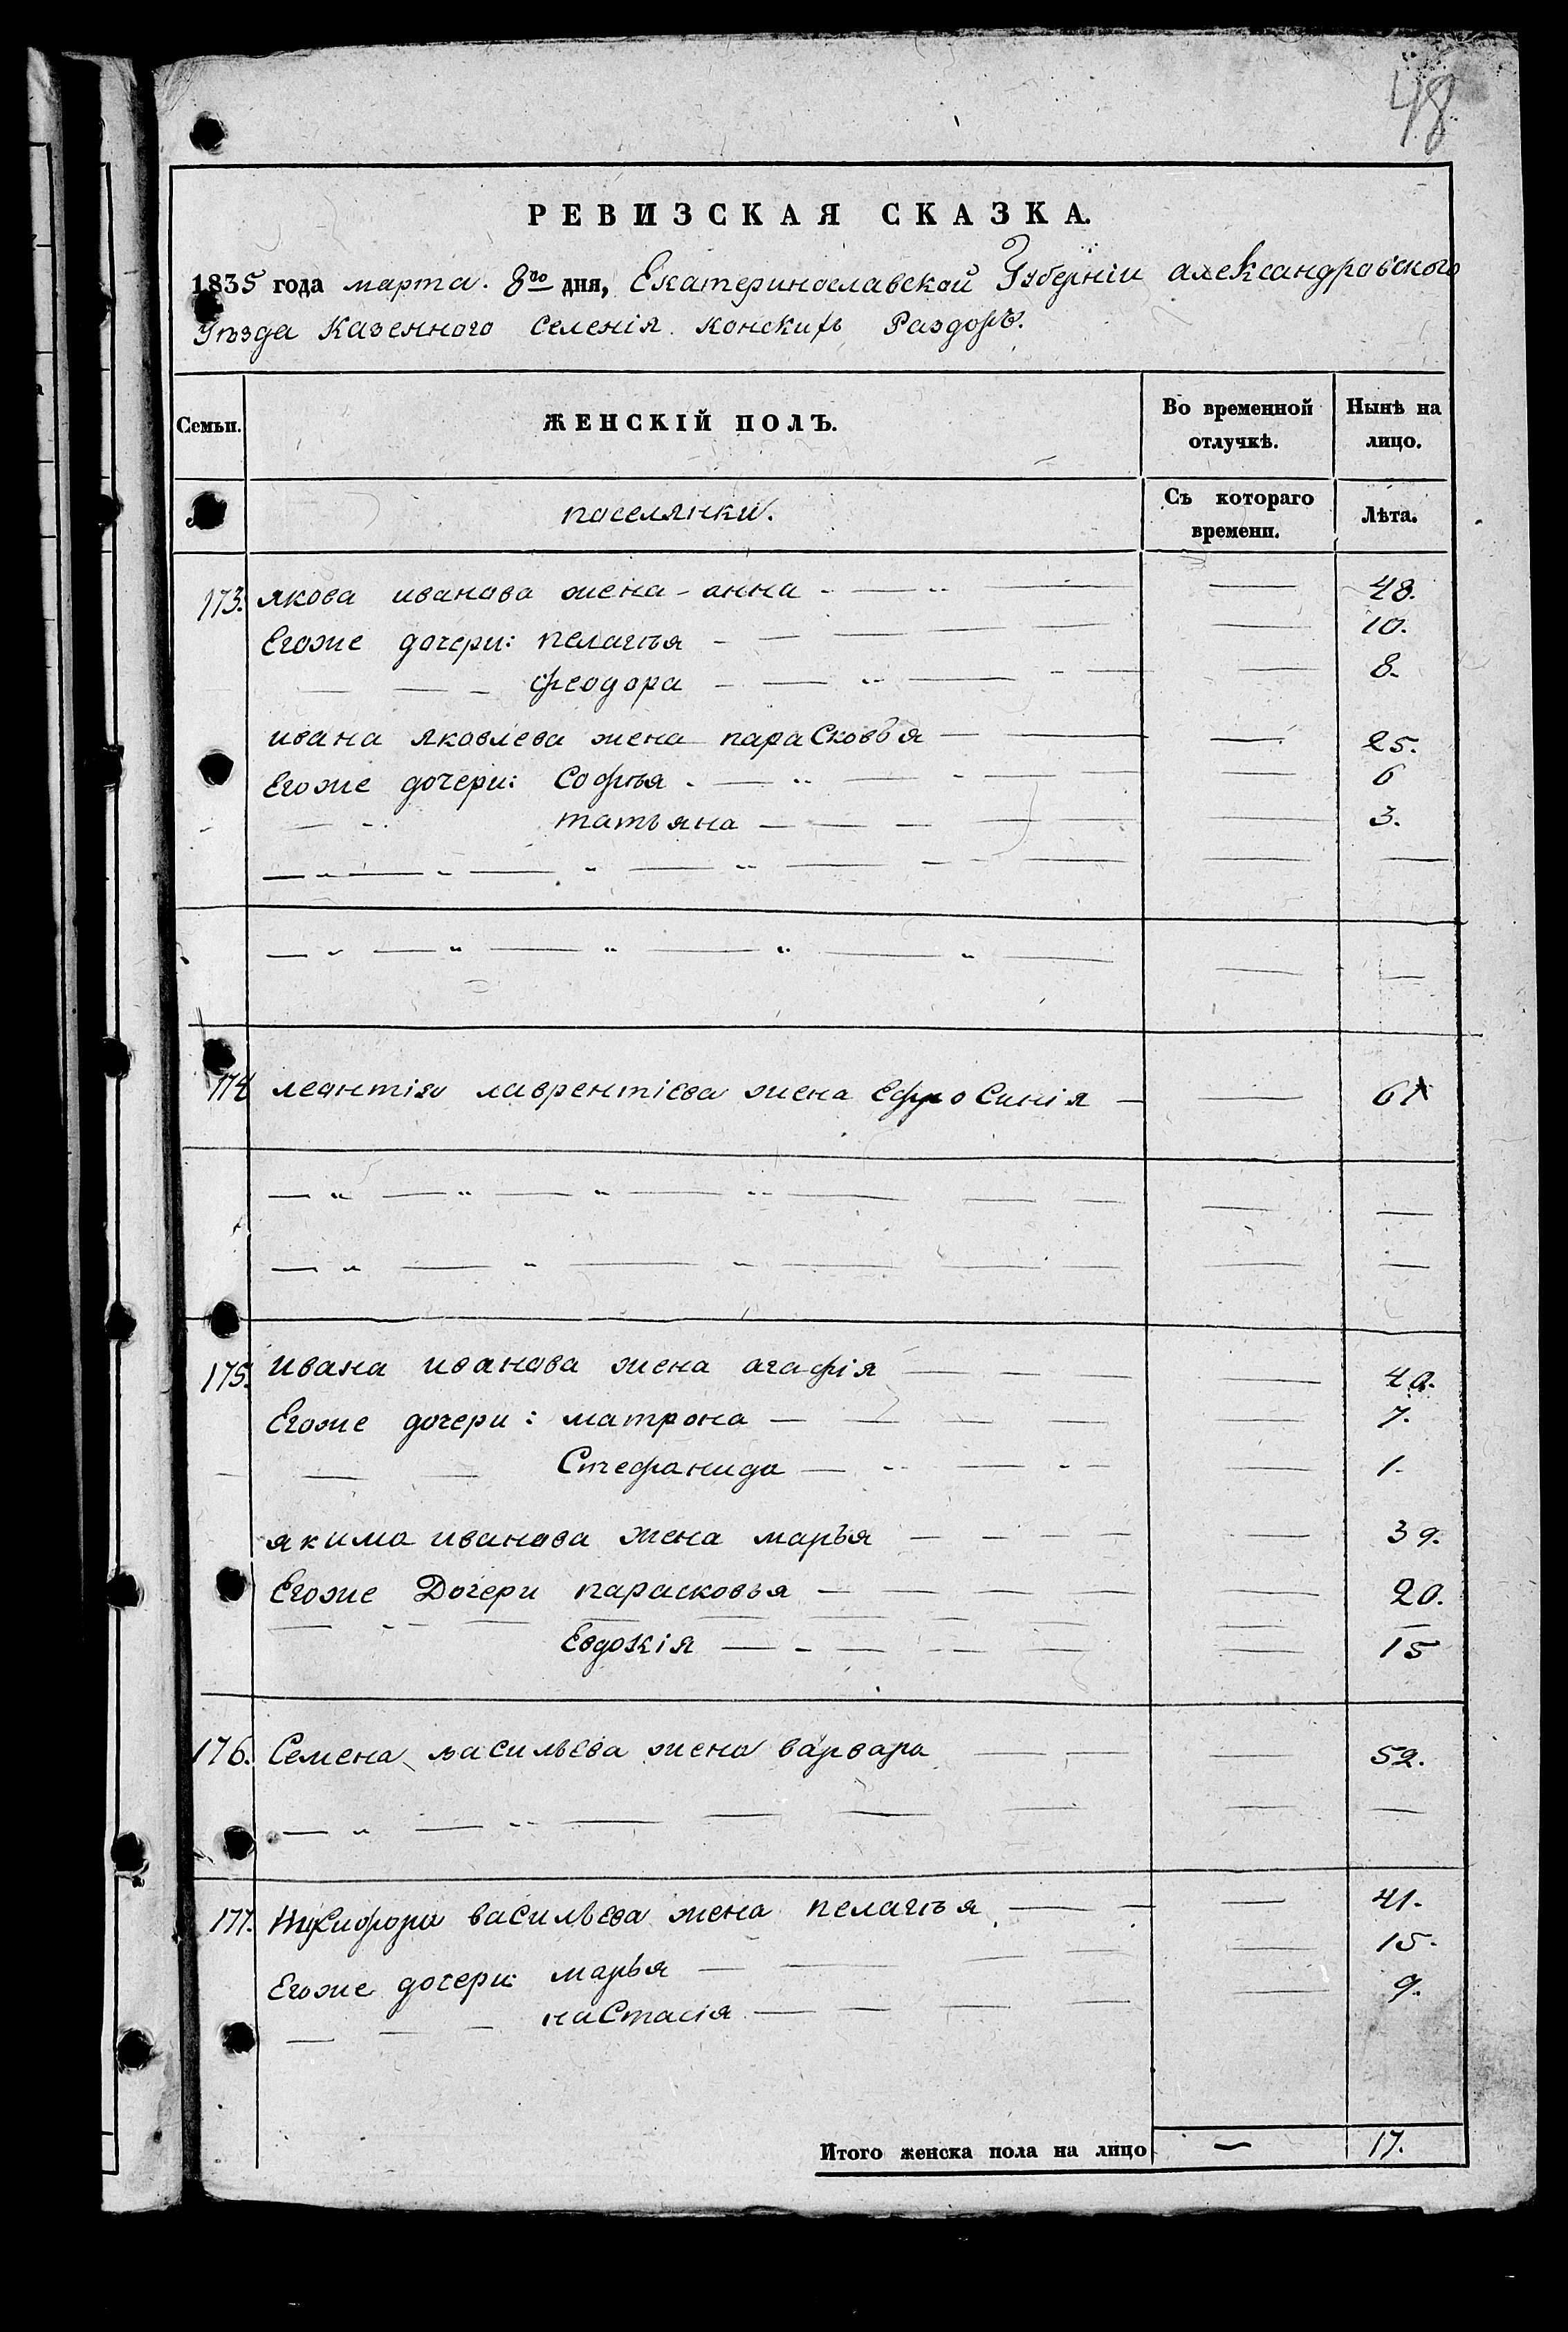 48
РЕВИЗСКАЯ СКАЗКА.
1835 года марта. 8го дня, Екатеринославской Губерніи александровского
Уѣзда Казенного Селенія Конскихъ Раздоръ.
Семьи. ЖЕНСКІЙ ПОЛЪ. Во временной отлучкѣ. Нынѣ на лицо.
поселянки. Съ котораго времени. Лѣта.
173. якова иванова жена - анна - — „ — — 48.
Егоже дочери: пелагѣя - — — — — — 10.
— — - феодора - — „ — - — — 8.
ивана яковлева жена парасковья — — — 25.
Егоже дочери: Софья . — „ — - — — — 6
— - татьяна — — — — — 3.
— „ — „ — „ — „ — - - — — —
— „ — „ — „ — „ — „ — — —
174 леонтія лаврентіева жена Ефросинія — — 61
— „ — „ — „ — „ — — — — —
— „ — „ — „ — — — — —
175. ивана иванова жена агафія — — — — 40.
Егоже дочери: матрона — — — — — 7.
— — Стефанида — - - — - - — 1.
якима иванова жена марья — — — — — 39.
Егоже Дочери парасковья — — — — — 20.
— - - — — — — — — —
Евдокія — - — — — — 15
176. Семена васильева жена варвара — — — 52.
— „ — „ — — — — — —
177. Никифора васильева жена пелагѣя — — — 41.
Егоже дочери: марья — — — — — 15.
— — — настасія — — — — — 9.
Итого женска пола на лицо — 17.